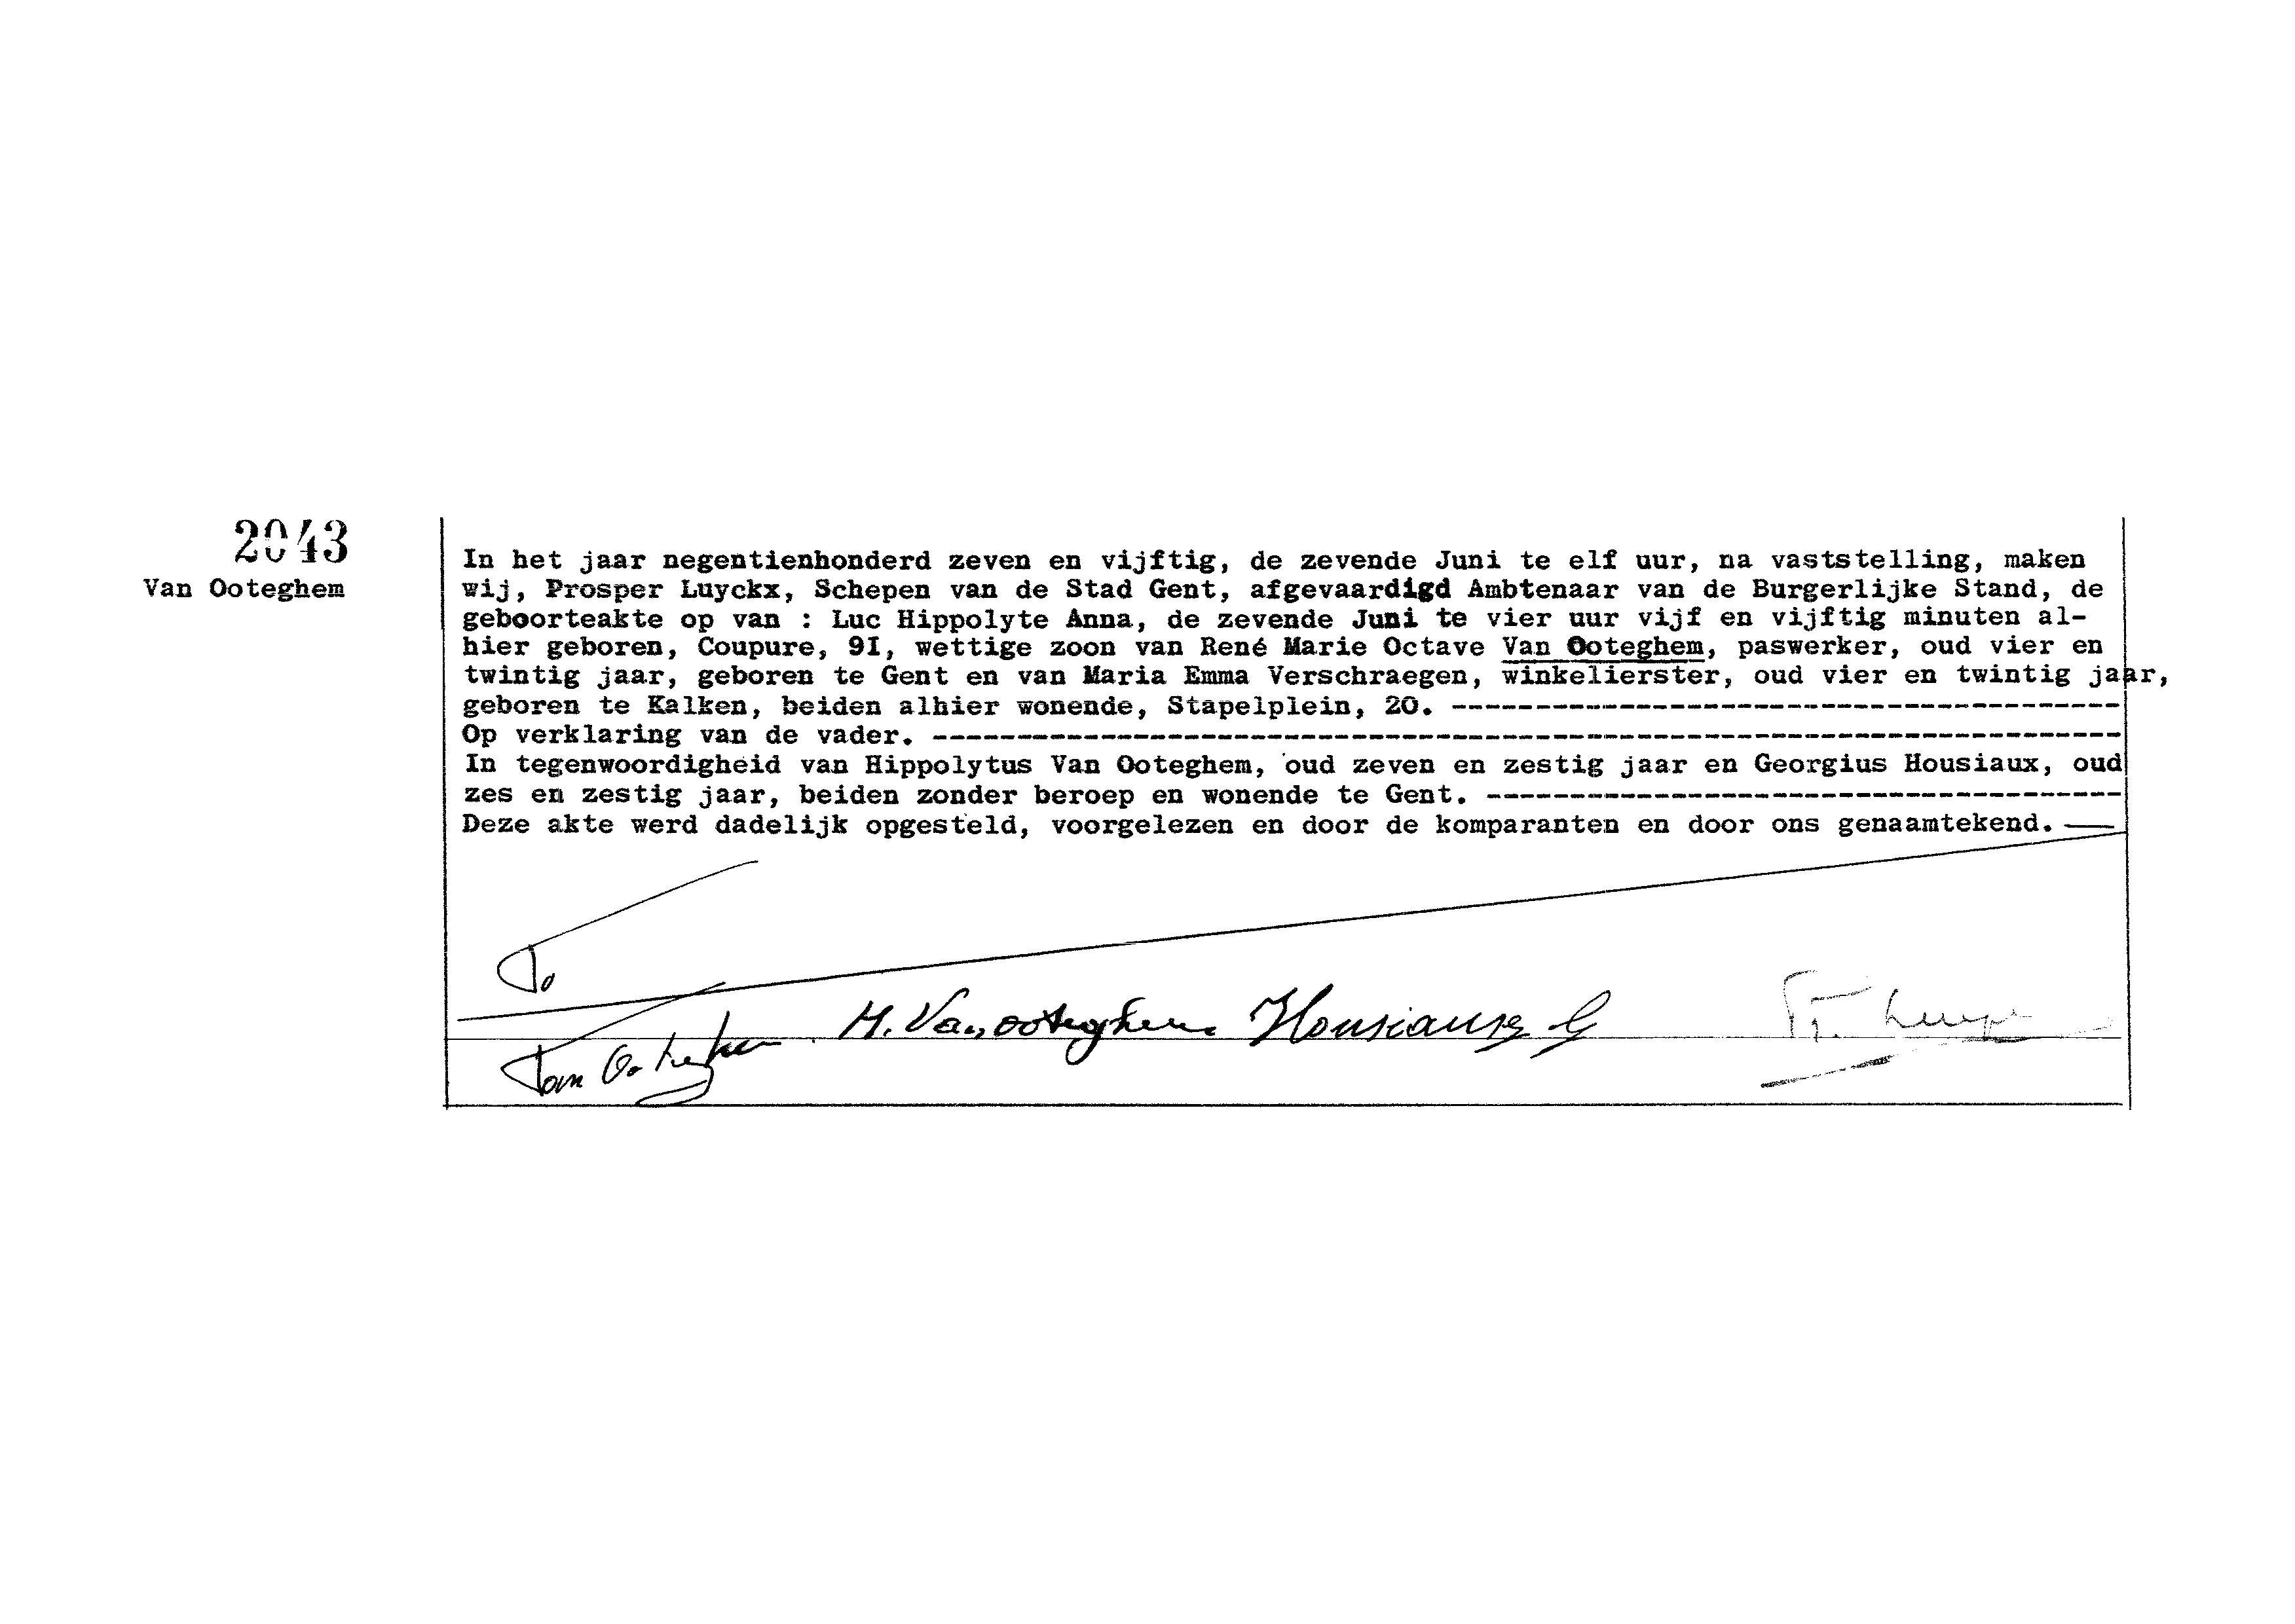 2043
Van Ooteghem
In het jaar negentienhonderd zeven en vijftig, de zevende Juni te elf uur, na vaststelling, maken
wij, Prosper Luyckx, Schepen van de Stad Gent, afgevaardigd Ambtenaar van de Burgerlijke Stand, de
geboorteakte op van : Luc Hippolyte Anna, de zevende Juni te vier uur vijf en vijftig minuten al-
hier geboren, Coupure, 9I, wettige zoon van René Marie Octave Van Ooteghem, paswerker, oud vier en
twintig jaar, geboren te Gent en van Maria Emma Verschraegen, winkelierster, oud vier en twintig jaar,
geboren te Kalken, beiden alhier wonende, Stapelplein, 20. ----------------------------------------
Op verklaring van de vader. -----------------------------------------------------------------------
In tegenwoordigheid van Hippolytus Van Ooteghem, oud zeven en zestig jaar en Georgius Housiaux, oud
zes en zestig jaar, beiden zonder beroep en wonende te Gent. --------------------------------------
Deze akte werd dadelijk opgesteld, voorgelezen en door de komparanten en door ons genaamtekend. —
Van Ooteghem H. Van ooteghem Housiaux G